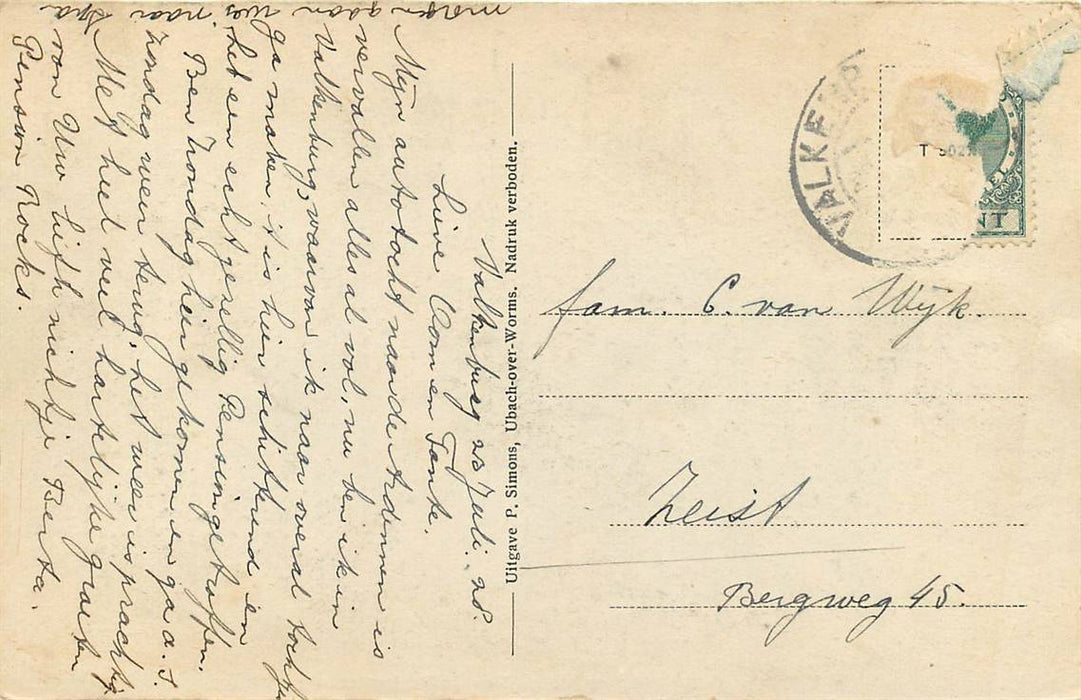 Valkenburg 23 Juli '28.
Lieve Oom en Tante.
Mijn autotocht naar de Ardennen is
vervallen alles al vol, nu ben ik in
Valkenburg, waarvan ik naar overal tochtjes
ga maken, 't is hier schitterend en
heb een echt gezellig Pension getroffen.
Ben Zondag hier gekomen en ga a.s.
Zondag weer terug, het weer is prachtig
Met heel veel hartelijke groeten
van Uw liefh nichtje Berta.
Pension Rocks.
morgen gaan we naar Spa
Uitgave P. Simons, Ubach-over-Worms. Nadruk verboden.
VALKENB
T 502
NT
fam. C. van Wijk.
Zeist
Bergweg 45.